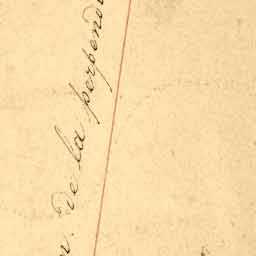 de la perpend